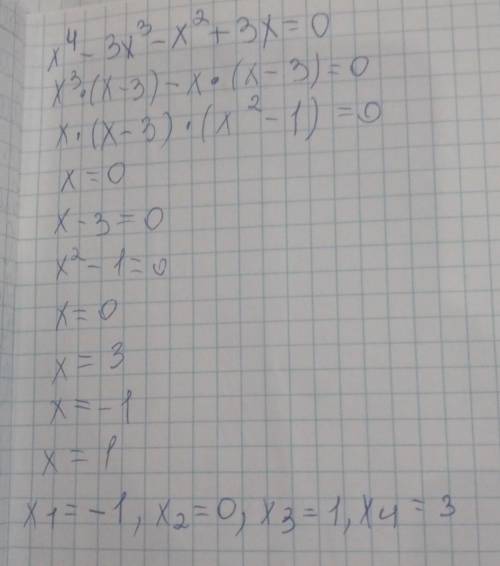 x⁴ - 3x³ - x² + 3x = 0
x³·(x-3) - x·(x-3) = 0
x·(x-3)·(x²-1) = 0
x = 0
x - 3 = 0
x² - 1 = 0
x = 0
x = 3
x = -1
x = 1
x₁ = -1, x₂ = 0, x₃ = 1, x₄ = 3